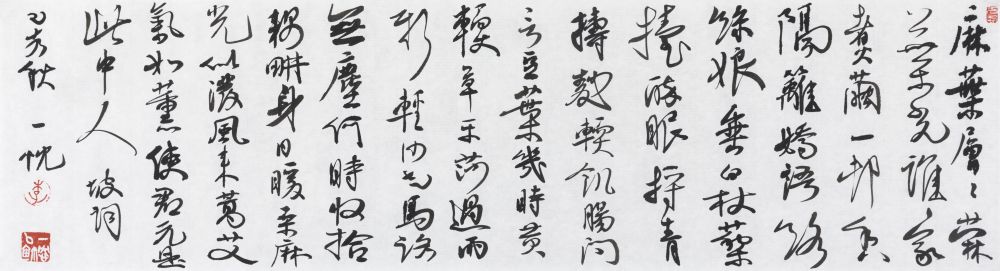 麻葉層〻檾
葉光誰家
煮繭一邨香
隔籬嬌語絡
絲娘垂白杖藜
擡醉眼捋青
擣麨輭飢腸問
言豆葉幾時黄
輭草平莎過雨
新輕沙走馬路
無塵何時收拾
耦耕身日暖桑麻
光似潑風来蒿艾
氣如薰使君元是
此中人 坡詞
亥秋 一忱
李